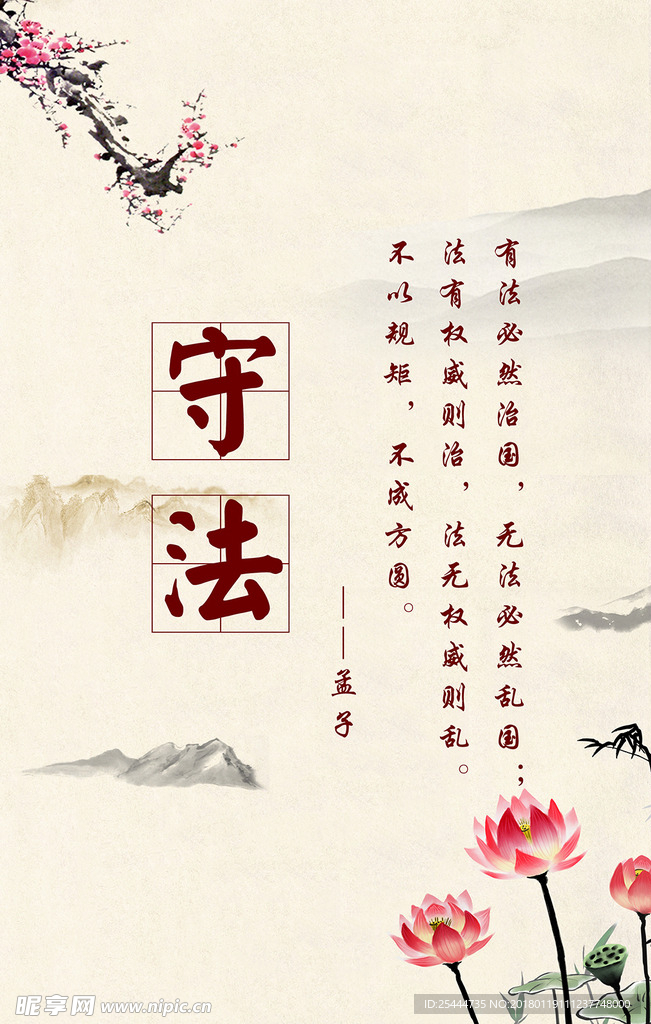 守法
有法必然治国，无法必然乱国；
法有权威则治，法无权威则乱。
不以规矩，不成方圆。
——孟子
昵享网 www.nipic.cn
ID:25444735 NO:20180119111237748000